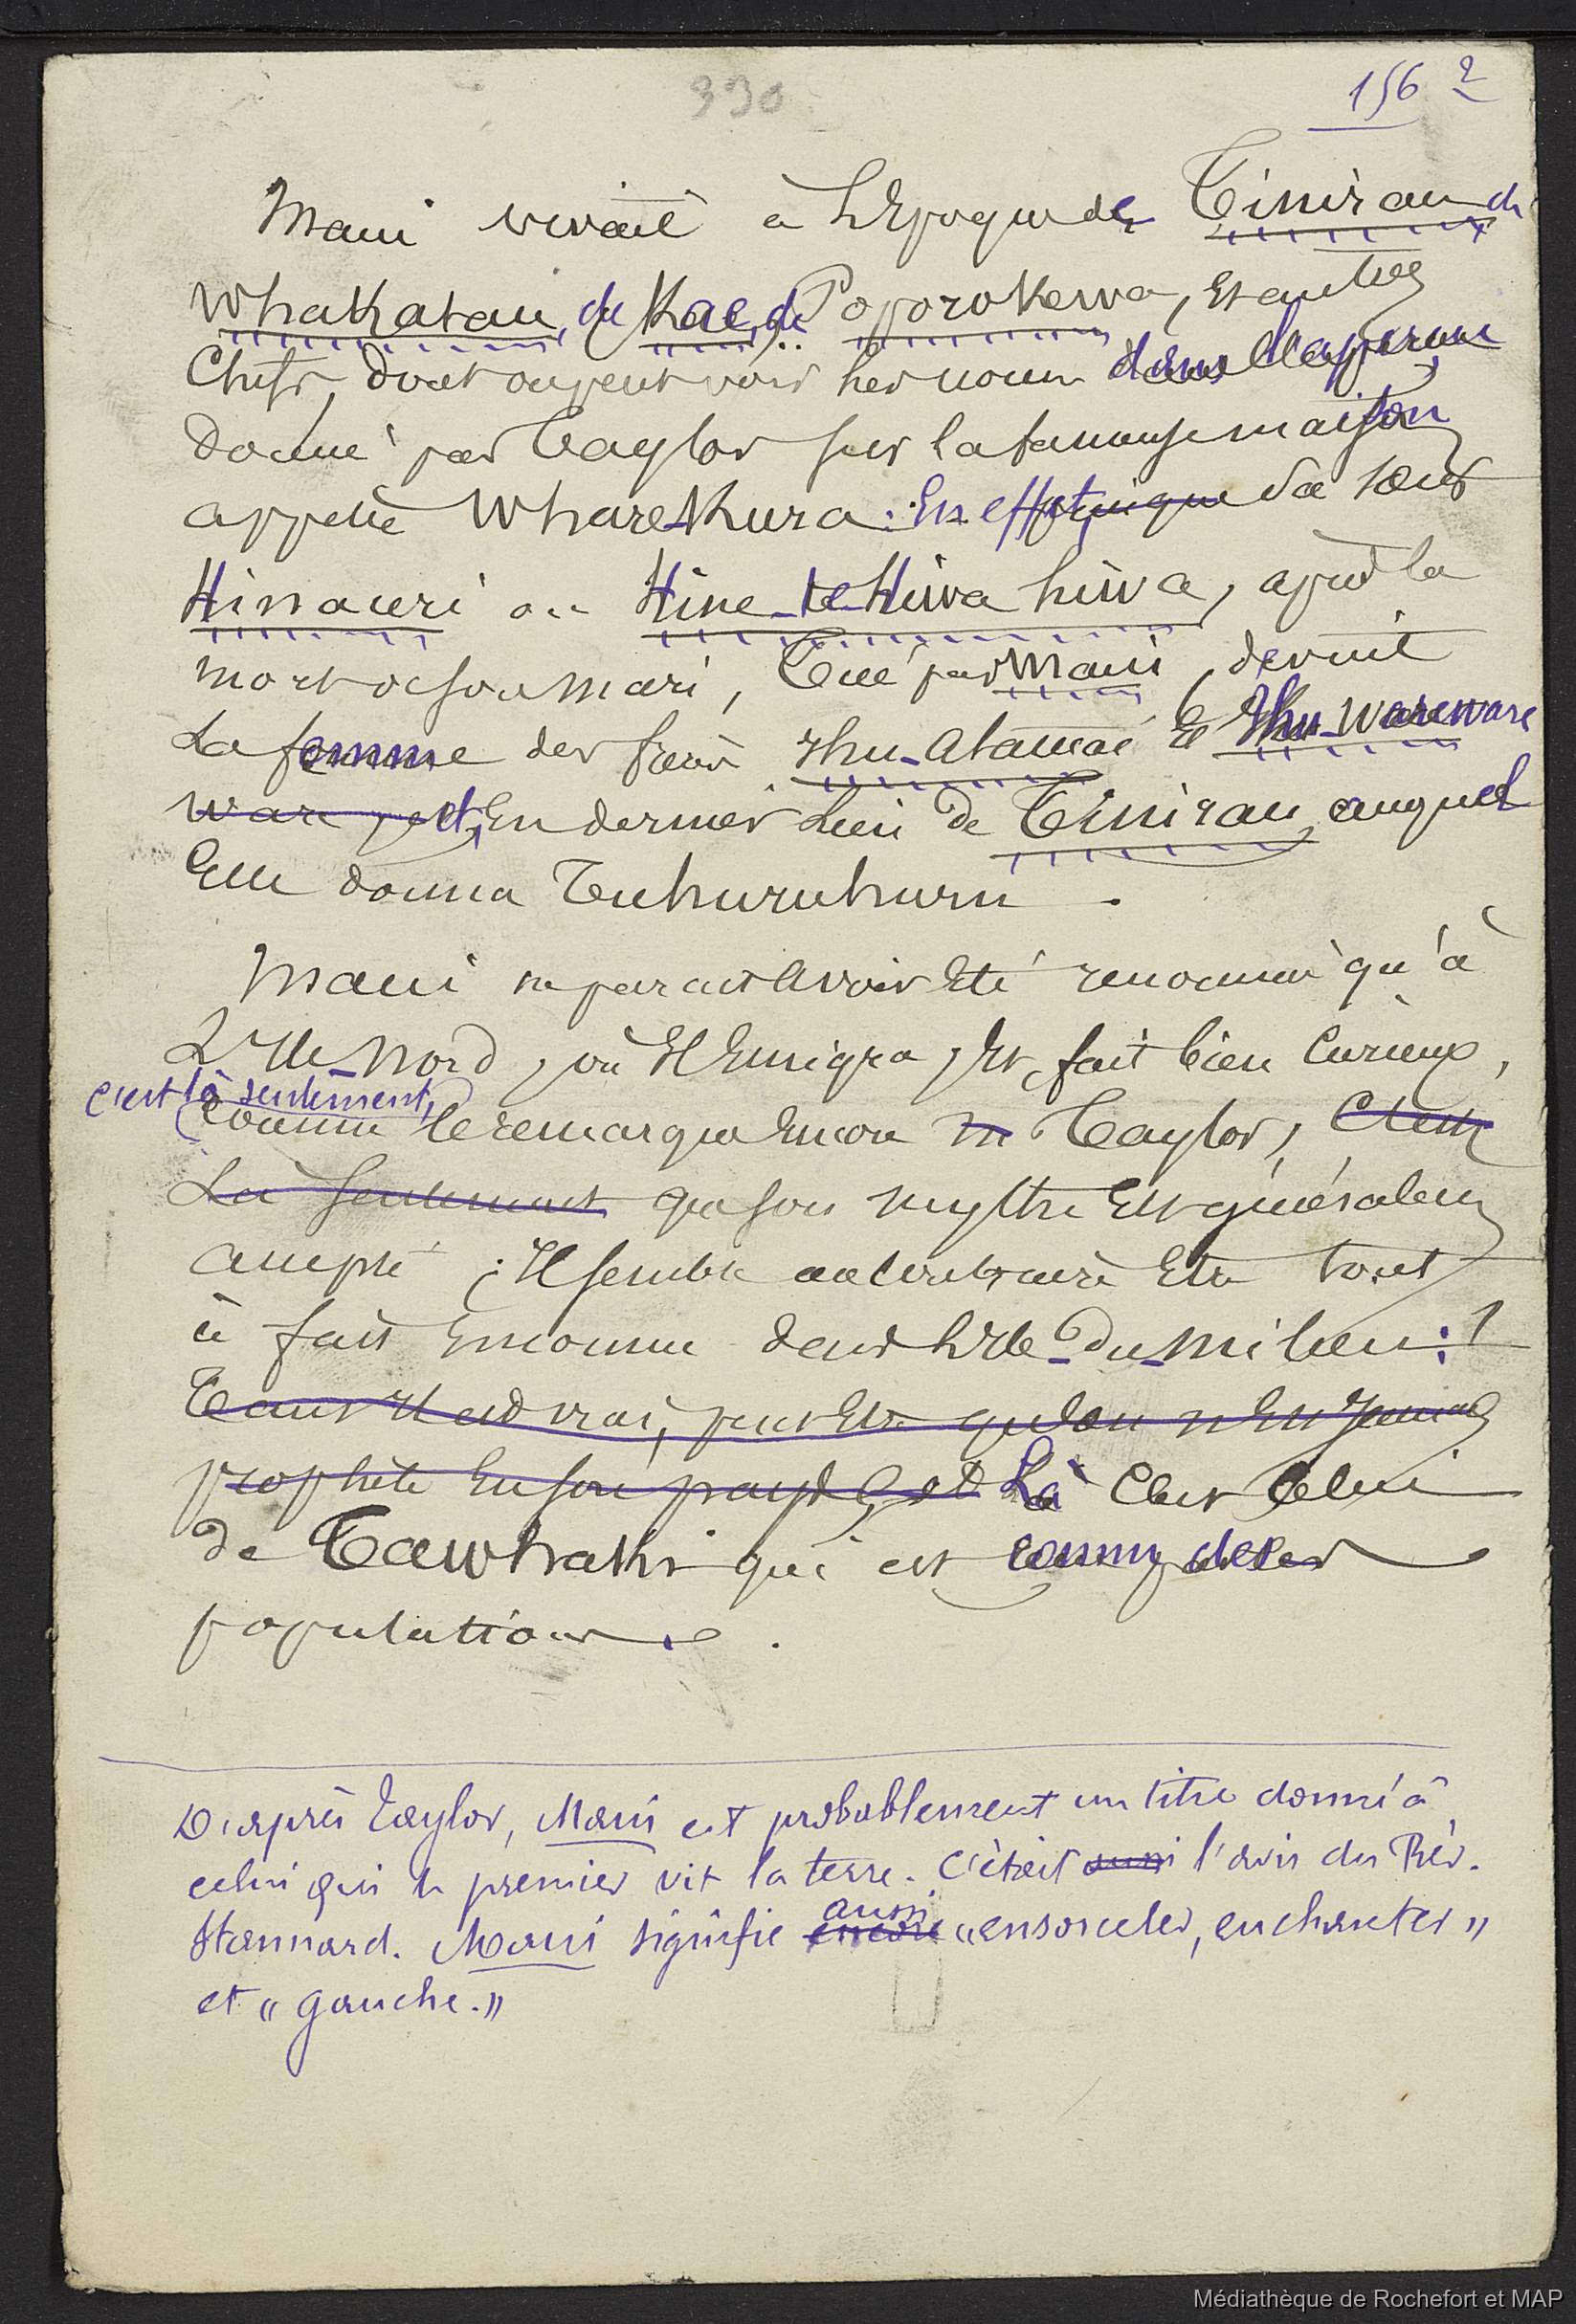 330
156 2
Maui vivait à l'Epoque de Tinirau de
Whakatau, de Kae, de Poporokewa, Et autres
Chefs, dont on peut voir les noms dans l'aperçu
donné par Taylor sur la fameuse maison
appelée Whare-Kura : En effet, puisque sa sœur
Hinauri ou Hine-te-Hiwa hiwa, après la
mort de son mari, Tué par Maui, devint
La femme des frères Ihu-Atamai Et Ihu-wareware
ware et, En dernier lieu de Tinirau auquel
Elle donna Tuhuruhuru.
Maui ne parait avoir Eté renommé qu'à
L'Ile-Nord, où Il Emigra, Et, fait bien Curieux,
c'est là seulement,
Comme le remarque Encore M Taylor, C'est
Là seulement que son mythe Est généralem
accepté ; Il semble au contraire Etre tout
à fait Inconnu dans L'Ile-du-Milieu :
Tant Il est vrai, peut Etre qu'on n'Est Jamais
prophète En son pays, et Là C'est Celui
de Tawhaki qui est connu des
populations.
D'après Taylor, Maui est probablement un titre donné à
celui qui le premier vit la terre. C'était aussi l'avis du Rév.
Stannard. Maui signifie encore aussi « ensorceler, enchanter »
et « gauche. »
Médiathèque de Rochefort et MAP